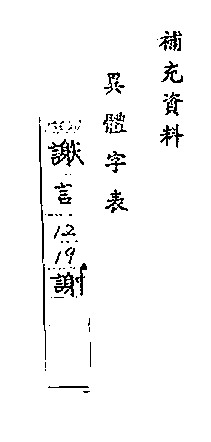 補充資料
異體字表
謙
言
12
19
謝